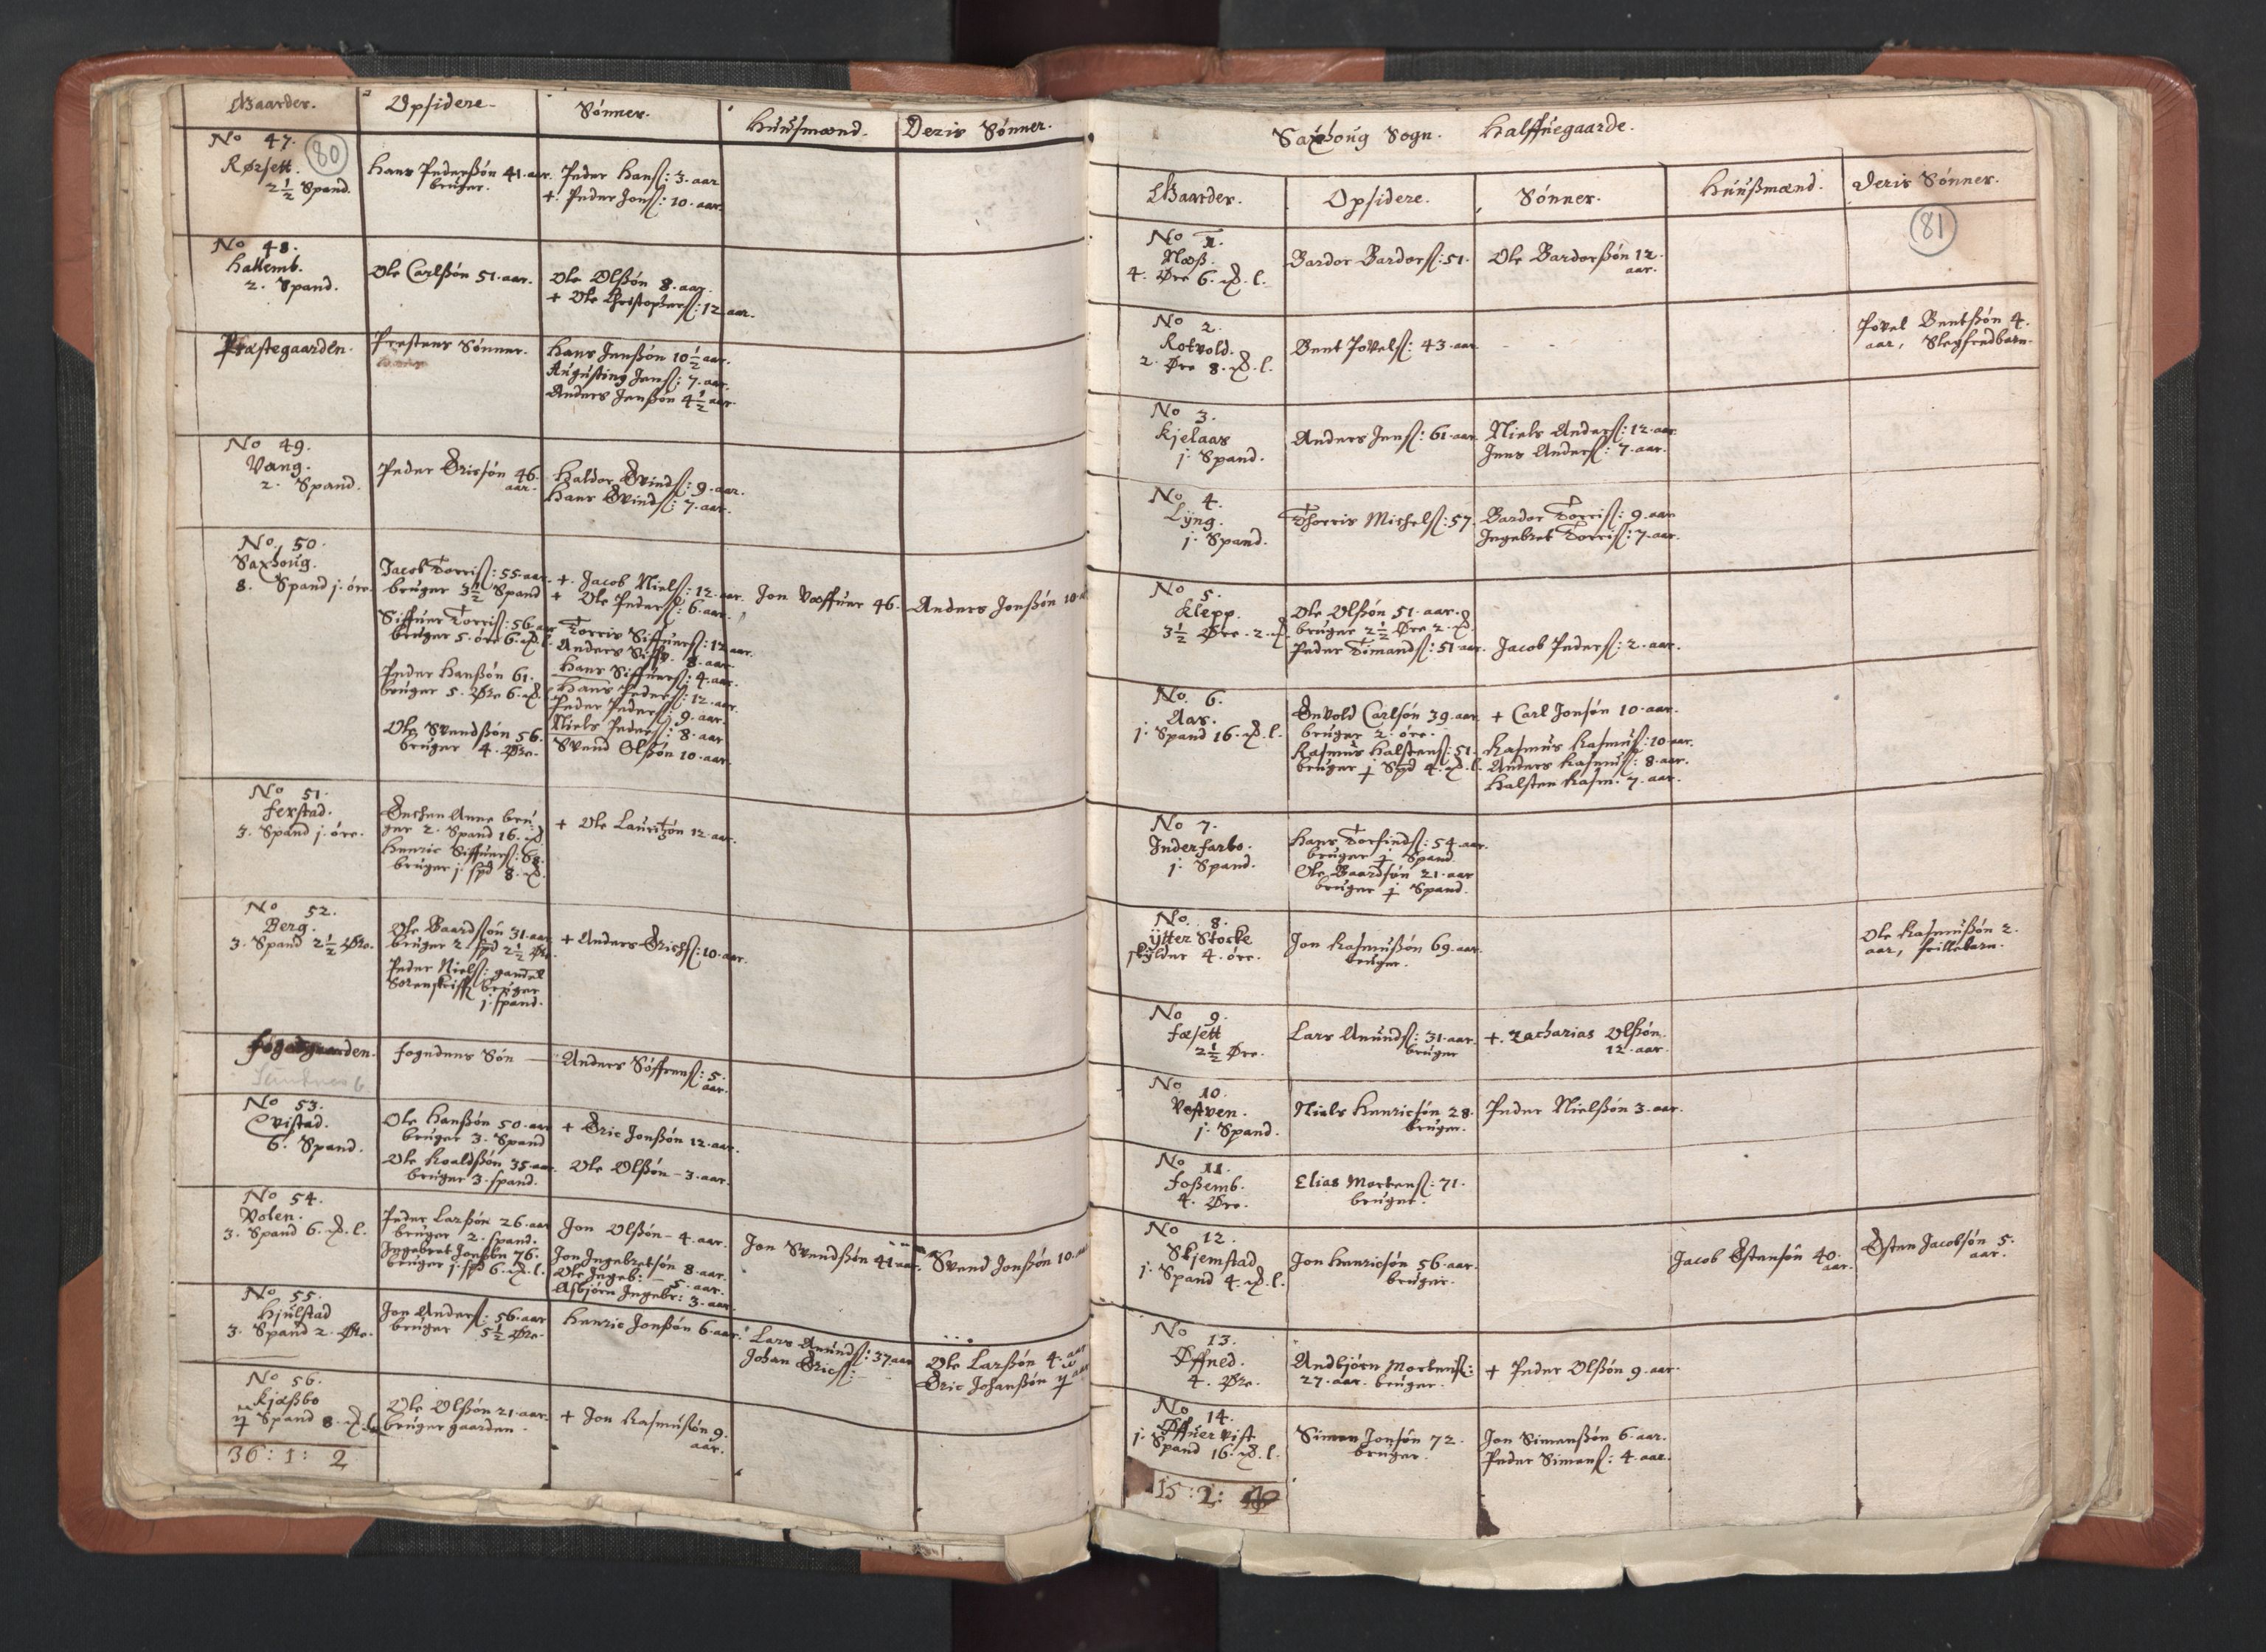 Gaarder. Opsidere Sønner. Huusmænd. Deris Sønner.
No 47.
80
Rørsett.
2½ Spand.
Hans Pederßön 41. aar.
bruger.
Peder Hanß: 3. aar
+. Peder Jonß: 10. aar.
No 48.
Hallemb.
2. Spand.
Ole Carlßön 51. aar.
Ole Olßön 8. aar.
+ Ole Christophers: 12. aar.
Præstegaarden.
Prestens Sønner.
Hans Jenßön 10½ aar.
Augusting Jenß: 7. aar.
Anders Jenßön 4½ aar.
No 49.
Vang.
2. Spand.
Peder Ericsön 46.
aar.
Haldor Evindß: 9. aar.
Hans Evindß: 7. aar.
No. 50.
Saxhoug.
8. Spand j. öre.
Jacob Torriß: 55. aar.
bruger 3½ Spand
Siffuer Torriß: 56. aar
bruger 5. öre 6. l.
Peder Hanßön 61.
bruger 5. Øre 6.
Ole Svendßön 56.
bruger 4. Øre.
+. Jacob Nielß: 12. aar.
+ Ole Pederß: 6. aar.
Torris Siffuerß: 12. aar.
Anders Siffv. 8. aar.
Hans Siffuerß: 4. aar.
Hans Pederß: 12. aar.
Peder Pederß: 9. aar.
Niels Pederß: 8. aar
Svend Olßön 10. aar.
Jon Væffuer 46.
Anders Jonßön 10.
No 51.
Ferstad.
3. Spand j. öre.
Enchen Anne bru
ger 2. Spand 16.
Henric Siffuerß: 68.
bruger j. spd 8.
+ Ole Lauritzön 12. aar.
No 52.
Berg.
3. Spand 2½ Øre.
Ole Baardßön 31. aar
bruger 2. spd 2½ Øre.
Peder Nielß: gamel
Sorenskriffr bruger
j. spand.
+ Anders Erichß: 10. aar.
Fogedgaarden.
Fogedens Sön
Anders Söffrenß: 5.
aar.
No 53.
Qvistad.
6. Spand.
Ole Hanßön 50. aar
bruger 3. Spand
Ole Roaldßön 35. aar.
bruger 3. spand.
+ Eric Jonßön 12. aar.
Ole Olßön - 3. aar.
No 54.
Volen.
3. Spand 6. l.
Peder Larßön 26. aar
bruger 2. spand.
Ingebret Jonßön 76.
bruger j. spd 6. l.
Jon Olßön - 4. aar.
Jon Ingebretsön 8. aar.
Ole Ingeb: 5. aar.
Asbjørn Ingebr: 3. aar.
Jon Svendßön 41 aar.
Svend Jonßön 10.
No 55.
Hjulstad
3. Spand 2. Øre.
Jon Anderß: 56. aar
bruger 5½ Øre.
Henric Jonßön 6. aar.
Lars Amundß: 37 aar
Johan Ericß:
Ole Larßön 4. aar
Eric Johanßön
No 56.
Kjæßbo
Spand 8.
Ole Olßön 21. aar.
bruger gaarden.
+ Jon Rasmusön 9.
aar.
36 : 1 : 2
Saxhoug Sogn. Halffuegaarde.
Gaarder. Opsidere. Sønner. Huußmænd. Deris Sønner.
81
No 1.
Næß.
4. Øre 6. l.
Bardor Bardorß: 51.
Ole Bardorßön 12.
aar.
No 2.
Rotvold.
2. Øre 8. l.
Bent Povelß: 43. aar
Povel Bentßön 4.
aar, Slegfredbarn.
No 3.
Kjelaas
j. Spand.
Anders Jenß: 61. aar.
Niels Anderß: 12. aar.
Jens Anderß: 7. aar.
No 4.
Lyng.
j. Spand.
Thorris Michelß: 57.
Bardor Torriß: 9. aar
Ingebret Torriß: 7. aar.
No 5.
Klepp.
3½ Øre. 2.
Ole Olßön 51. aar.
bruger 2½ Øre 2.
Peder Simandß: 51 aar.
Jacob Pederß: 2. aar.
No. 6.
Aas.
j. Spand 16. l.
Envold Carlsön 39. aar.
bruger 2. öre.
Rasmus Halstenß: 51.
bruger Spd 4. l.
+ Carl Jonsön 10. aar.
Rasmus Rasmuß: 10. aar.
Anders Rasmuß: 8. aar.
Halsten Rasm. 7. aar.
No 7.
Inderfarbo.
j. Spand.
Hans Torfindß: 54. aar.
bruger Spand
Ole Baardsön 21. aar
bruger Spand.
No. 8.
Ytter Stocke
skylder 4. öre.
Jon Rasmußön 69. aar.
bruger.
Ole Rasmußön 2.
aar, frillebarn.
No 9.
Fæsett
2½ Øre.
Lars Amundß: 31. aar.
bruger
+. Zacharias Olßön.
12. aar.
No 10.
Vestven.
j. Spand.
Niels Henricsön 28.
bruger.
Peder Nielßön 3. aar.
No 11.
Foßemb.
4. Øre.
Elias Mortenß: 71.
bruger.
No 12.
Skjemstad
j. Spand 4. l.
Jon Henricsön 56. aar.
bruger.
Jacob Østensön 40.
aar.
Østen Jacobsön 5.
aar.
No 13.
Øffned.
4. Øre.
Andbjörn Mortenß:
27. aar. bruger.
+ Peder Olßön 9. aar.
No 14.
Øffuer vist
j. Spand 16. l.
Simon Jonsön 72.
bruger.
Jon Simonßön 6. aar.
Peder Simonß: 4. aar.
15 : 2 :